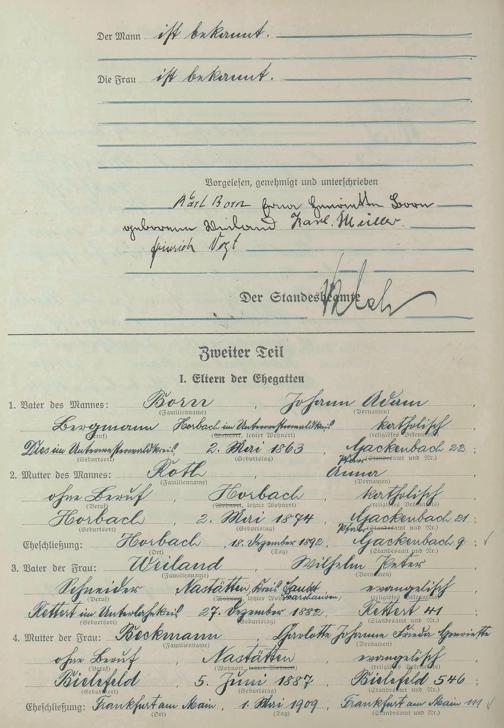 Der Mann ist bekannt.
Die Frau ist bekannt.
Vorgelesen, genehmigt und unterschrieben
Karl Born Erna Henriette Born
geborene Weiland Karl Müller
Heinrich Vogt
Der Standesbeamte
Zweiter Teil
I. Eltern der Ehegatten
1. Vater des Mannes: Born, Johann Adam
(Familienname) (Vornamen)
Bergmann Horbach im Unterwesterwaldkreis katholisch
(Beruf) (Wohnort, letzter Wohnort) (religiöses Bekenntnis)
Dies im Unterwesterwaldkreis 2. Mai 1863 Gackenbach 22;
(Geburtsort) (Geburtstag) (Standesamt und Nr.)
2. Mutter des Mannes: Roth Anna
(Familienname) (Vornamen)
ohne Beruf, Horbach katholisch
(Beruf) (Wohnort, letzter Wohnort) (religiöses Bekenntnis)
Horbach, 2. Mai 1874 Gackenbach 21;
(Geburtsort) (Geburtstag) (Standesamt und Nr.)
Eheschließung: Horbach, 18. Dezember 1892, Gackenbach 9
(Ort) (Tag) (Standesamt und Nr.)
3. Vater der Frau: Weiland, Wilhelm Peter
(Familienname) (Vornamen)
Schneider Nastätten, Kreis Sankt Goarshausen, evangelisch
(Beruf) (Wohnort, letzter Wohnort) (religiöses Bekenntnis)
Rettert im Unterlahnkreis 27. Dezember 1882 Rettert 41
(Geburtsort) (Geburtstag) (Standesamt und Nr.)
4. Mutter der Frau: Beckmann, Charlotte Johanne Frieda Henriette
(Familienname) (Vornamen)
ohne Beruf, Nastätten, evangelisch
(Beruf) (Wohnort, letzter Wohnort) (religiöses Bekenntnis)
Bielefeld, 5. Juni 1887 Bielefeld 546;
(Geburtsort) (Geburtstag) (Standesamt und Nr.)
Eheschließung: Frankfurt am Main, 1. Mai 1909, Frankfurt am Main
(Ort) (Tag) (Standesamt und Nr.)